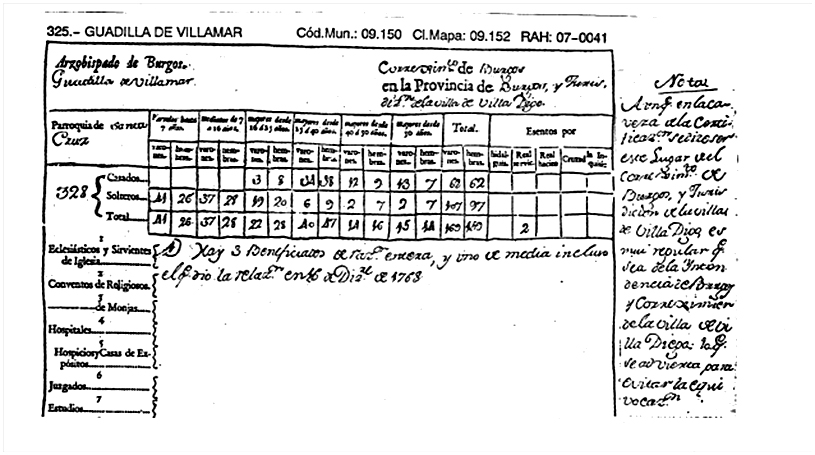 325.– GUADILLA DE VILLAMAR Cód.Mun.: 09.150 Cl.Mapa: 09.152 RAH: 07-0041
Arzobispado de Burgos.
Guadilla de Villamar.
Corregim.to de Burgos
en la Provincia de Burgos, y Juris.
di.on de la villa de Villa Diego.
Parroquia de Santa
Cruz
7 años. a 16 años. 16 á 25 años. 25 á 40 años. 40 á 50 años. 50 años. Total. Esentos por
varones. hembras. varones. hembras. varones. hembras. varones. hembras. varones. hembras. varones. hembras. varones. hembras. Real servic. Real hacien Cruzad la In-quisic.
Casados... 3 8 34 38 12 9 13 7 62 62
328 Solteros... 41 26 37 28 19 20 6 9 2 7 2 7 107 97
Total... 41 26 37 28 22 28 40 47 14 16 15 14 169 159 2
1
Eclesiásticos y Sirvientes
de Iglesia.
Hay 3 Beneficiados de raz.n entera, y uno de media incluso
el q.e dio la relaz.n en 16 de Diz.e de 1768
2
Conventos de Religiosos.
3
de Monjas.
4
Hospitales
5
Hospicios y Casas de Ex-
pósitos
6
Juzgados
7
Estudios
Nota
Aunq.e en la ca-
veza de la Certi-
ficaz.n se dice ser
este Lugar del
Corregim.to de
Burgos, y Juris
dicion de la villa
de Villa Diego es
mui regular q.e
sea de la Inten
dencia de Burgos
y Corregimien
de la villa de Vi
lla Diego: lo q.e
se advierte para
evitar la equi
vocaz.n